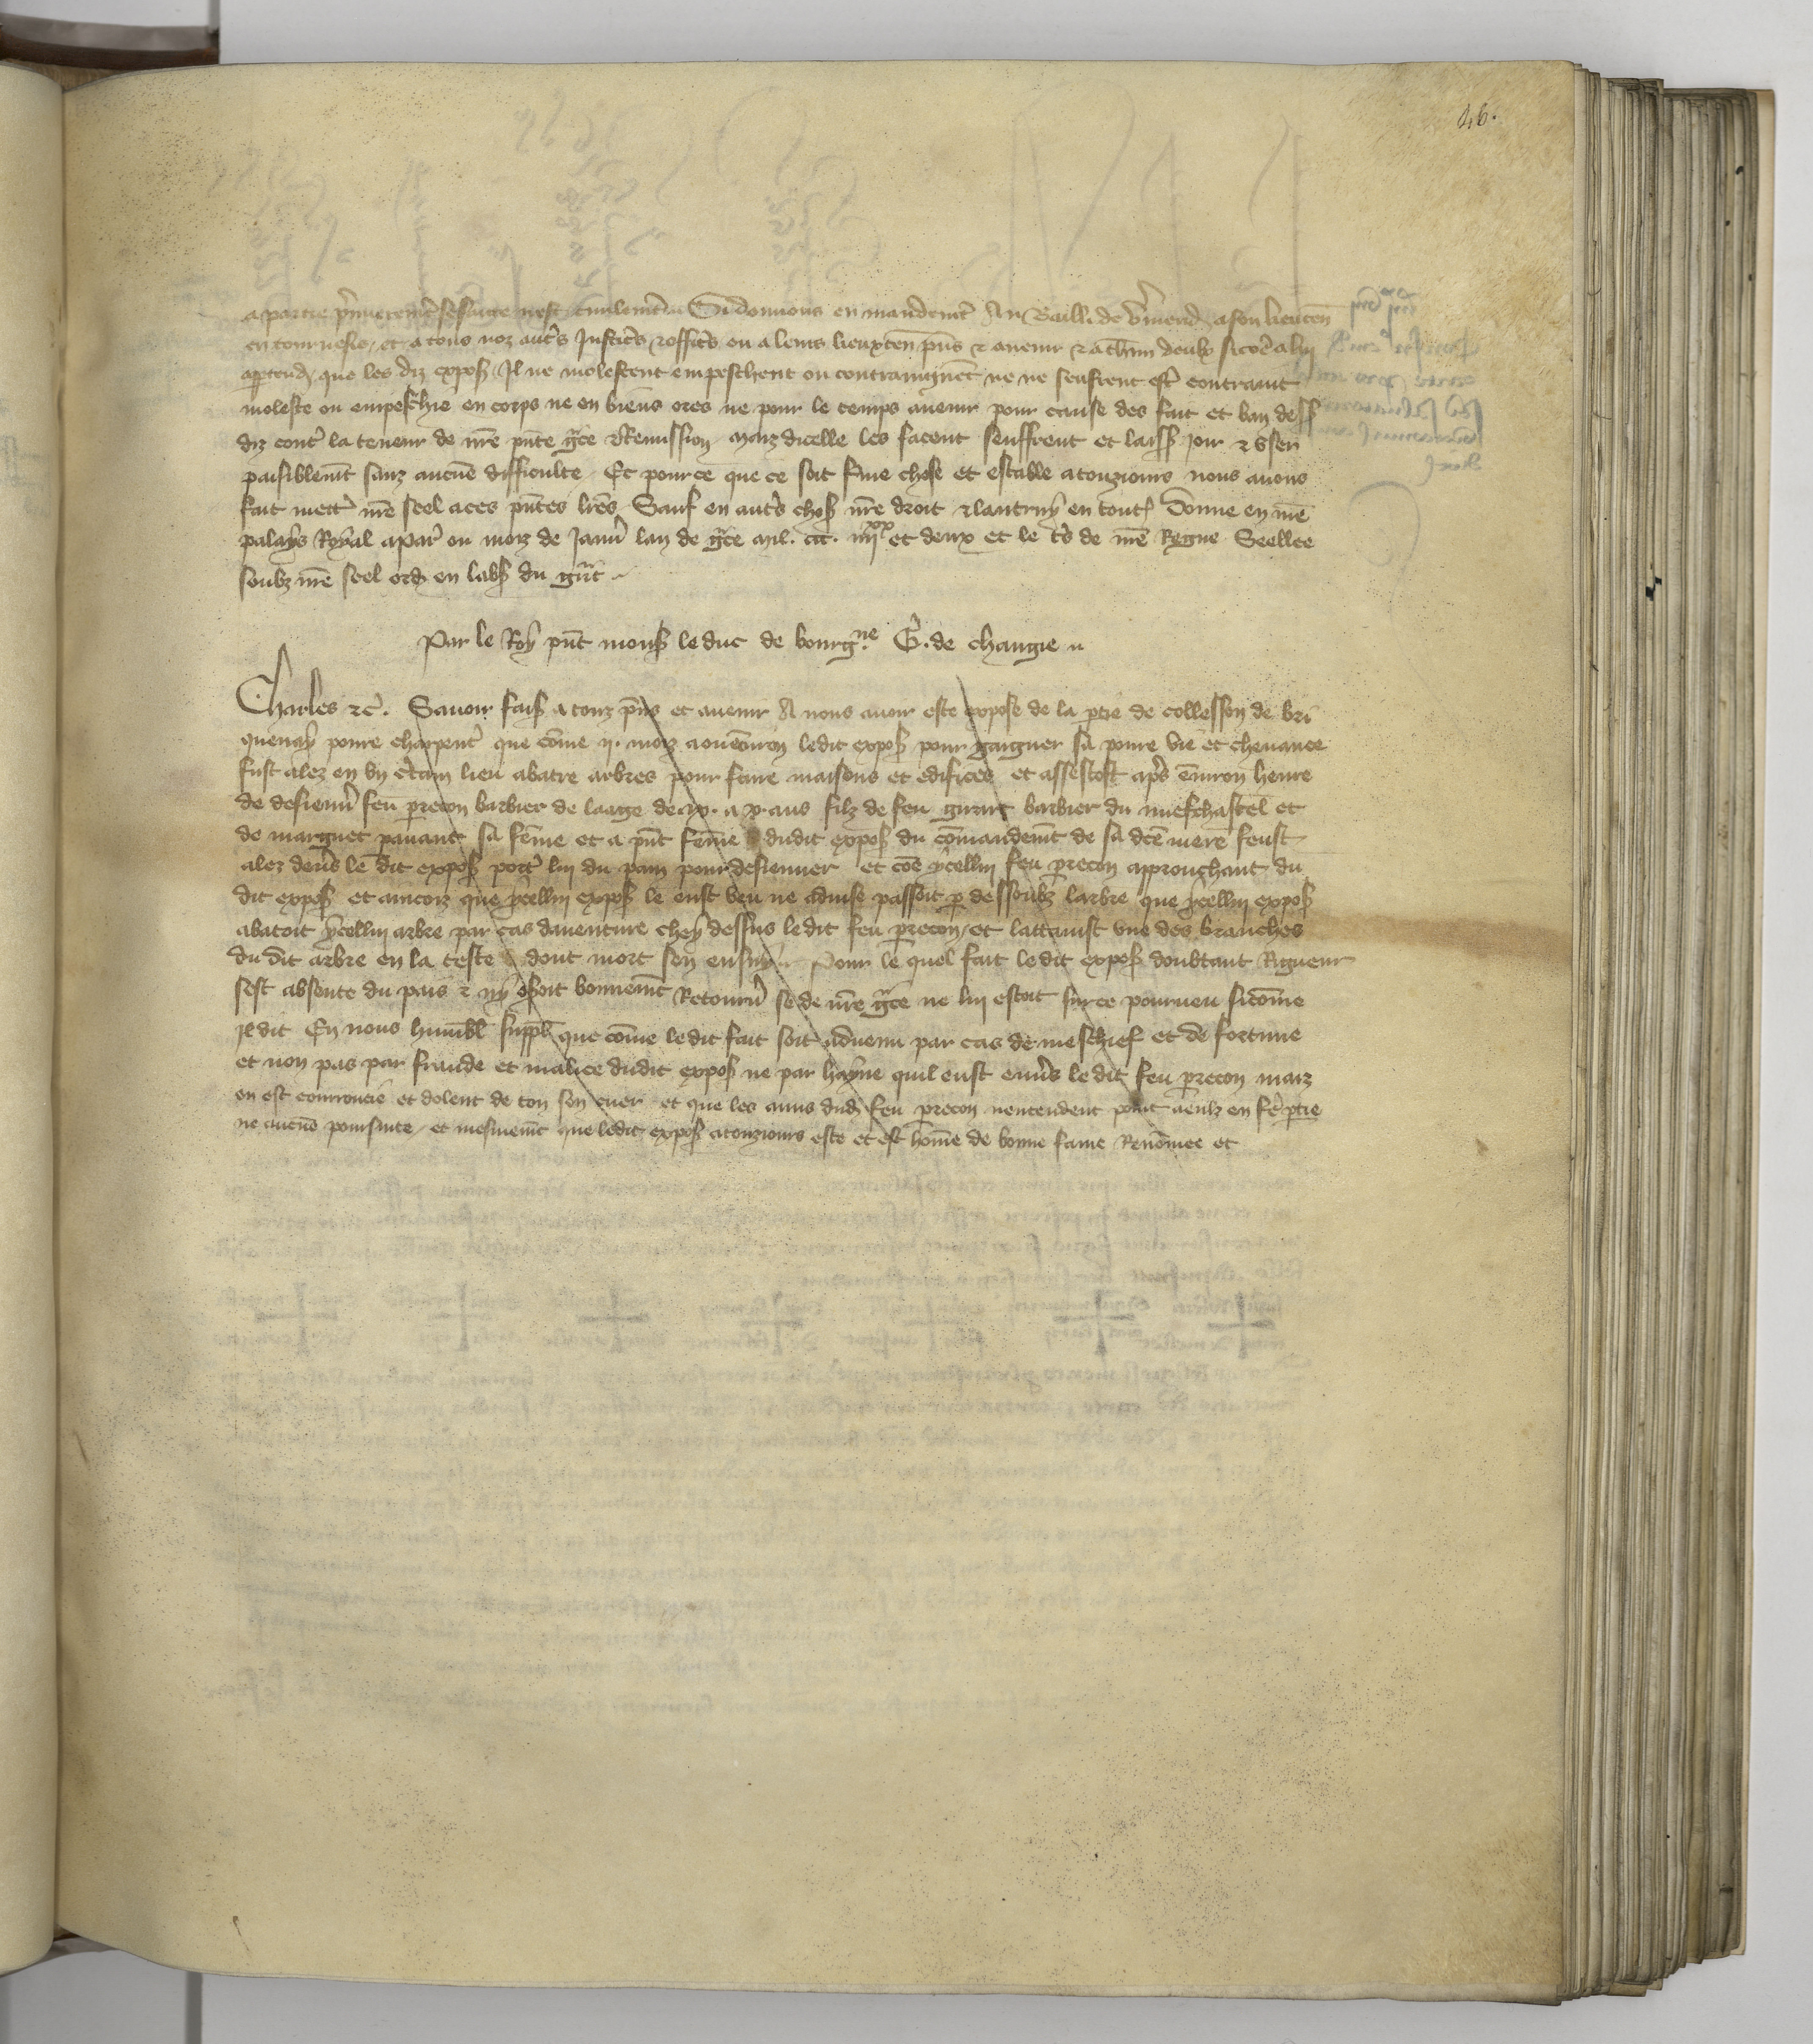 46.
a partie premierement se faicte nest civilement. Si donnons en mandemt Au Bailli de Vermend a son lieuten
en tournesis, et a tous noz autrs Justicrs & officrs ou a leurs lieuxten pñs & avenir & a chũn deulx si cõe a lui
aptend, que les diz exposs Il ne molestent empeschent ou contraignent ne ne seuffrent estre contraint
moleste ou empeschie en corps ne en biens ores ne pour le temps avenir pour cause des fait et ban dess
diz contr la teneur de nrẽ pñte grãce & Remission, maiz dicelle les facent seuffrent et laissẽ joir & user
paisiblemt sanz aucũe difficulte. Et pour ce que ce soit ferme chose et estable a touzjours nous avons
fait mettr nrẽ seel a ces pñtes lrẽs, Sauf en autrs choss nrẽ droit & lautruy en toutes. Donne en nrẽ
palays Royal a Par ou moiz de Janvr lan de grãce mil. ccc. iiijxx et deux et le trs de nrẽ Regne Seellee
soubz nrẽ seel ordẽ en labs du grãt
Par le Roy pñt mons le duc de bourgne G. de changie
Charles &c. Savoir faiss a touz pñs et avenir A nous avoir este expose de la ptie de collesson de bri
quenay povre charpentr que cõme ij. moiz a ou environ ledit exposs pour gaigner sa povre vie et chevance
fust alez en un crtain lieu abatre arbres pour faire maisons et edifices et assestost aprs environ heure
de desjeunr feu precon barbier de laage de ix. a x. ans filz de feu girart barbier du nuefchastel et
de marguet pavant sa femme et a pñt femme dudit exposs du cõmandemt de sa dcẽ mere feust
alez devrs le dit exposs portr lui du pain pour desieuner et cõe ycellui feu precon approuchant du
dit exposs et aincoiz que ycellui exposs le eust veu ne advise passoit p dessoubz larbre que ycellui exposs
abatoit ycellui arbre par cas daventure chey dessus ledit feu precon, et lattainst une des branches
du dit arbre en la teste dont mort sen ensuy. Pour le quel fait ledit exposs doubtant Rigueur
sest absente du pais & ny osoit bonnemt Retournr se de nrẽ grãce ne lui estoit sur ce pourveu si cõme
Il dit En nous humbl supplt que cõme ledit fait soit advenu par cas de meschief et de fortune
et non pas par fraude et malice dudit exposs ne par hayne quil eust envrs ledit feu precon maiz
en est courroucie et dolent de tou son cuer et que les amis dudẽ feu precon nentendent point a eulx en fẽ ptie
ne aucũe poursuite, et mesmemt que ledit exposs a touzjours este et est home de bonne fame Renõmee et